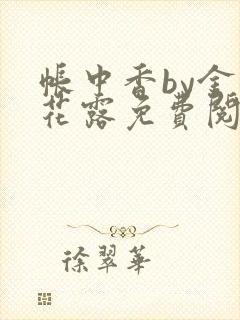 帳中香by金
花露免費閱
徐翠華